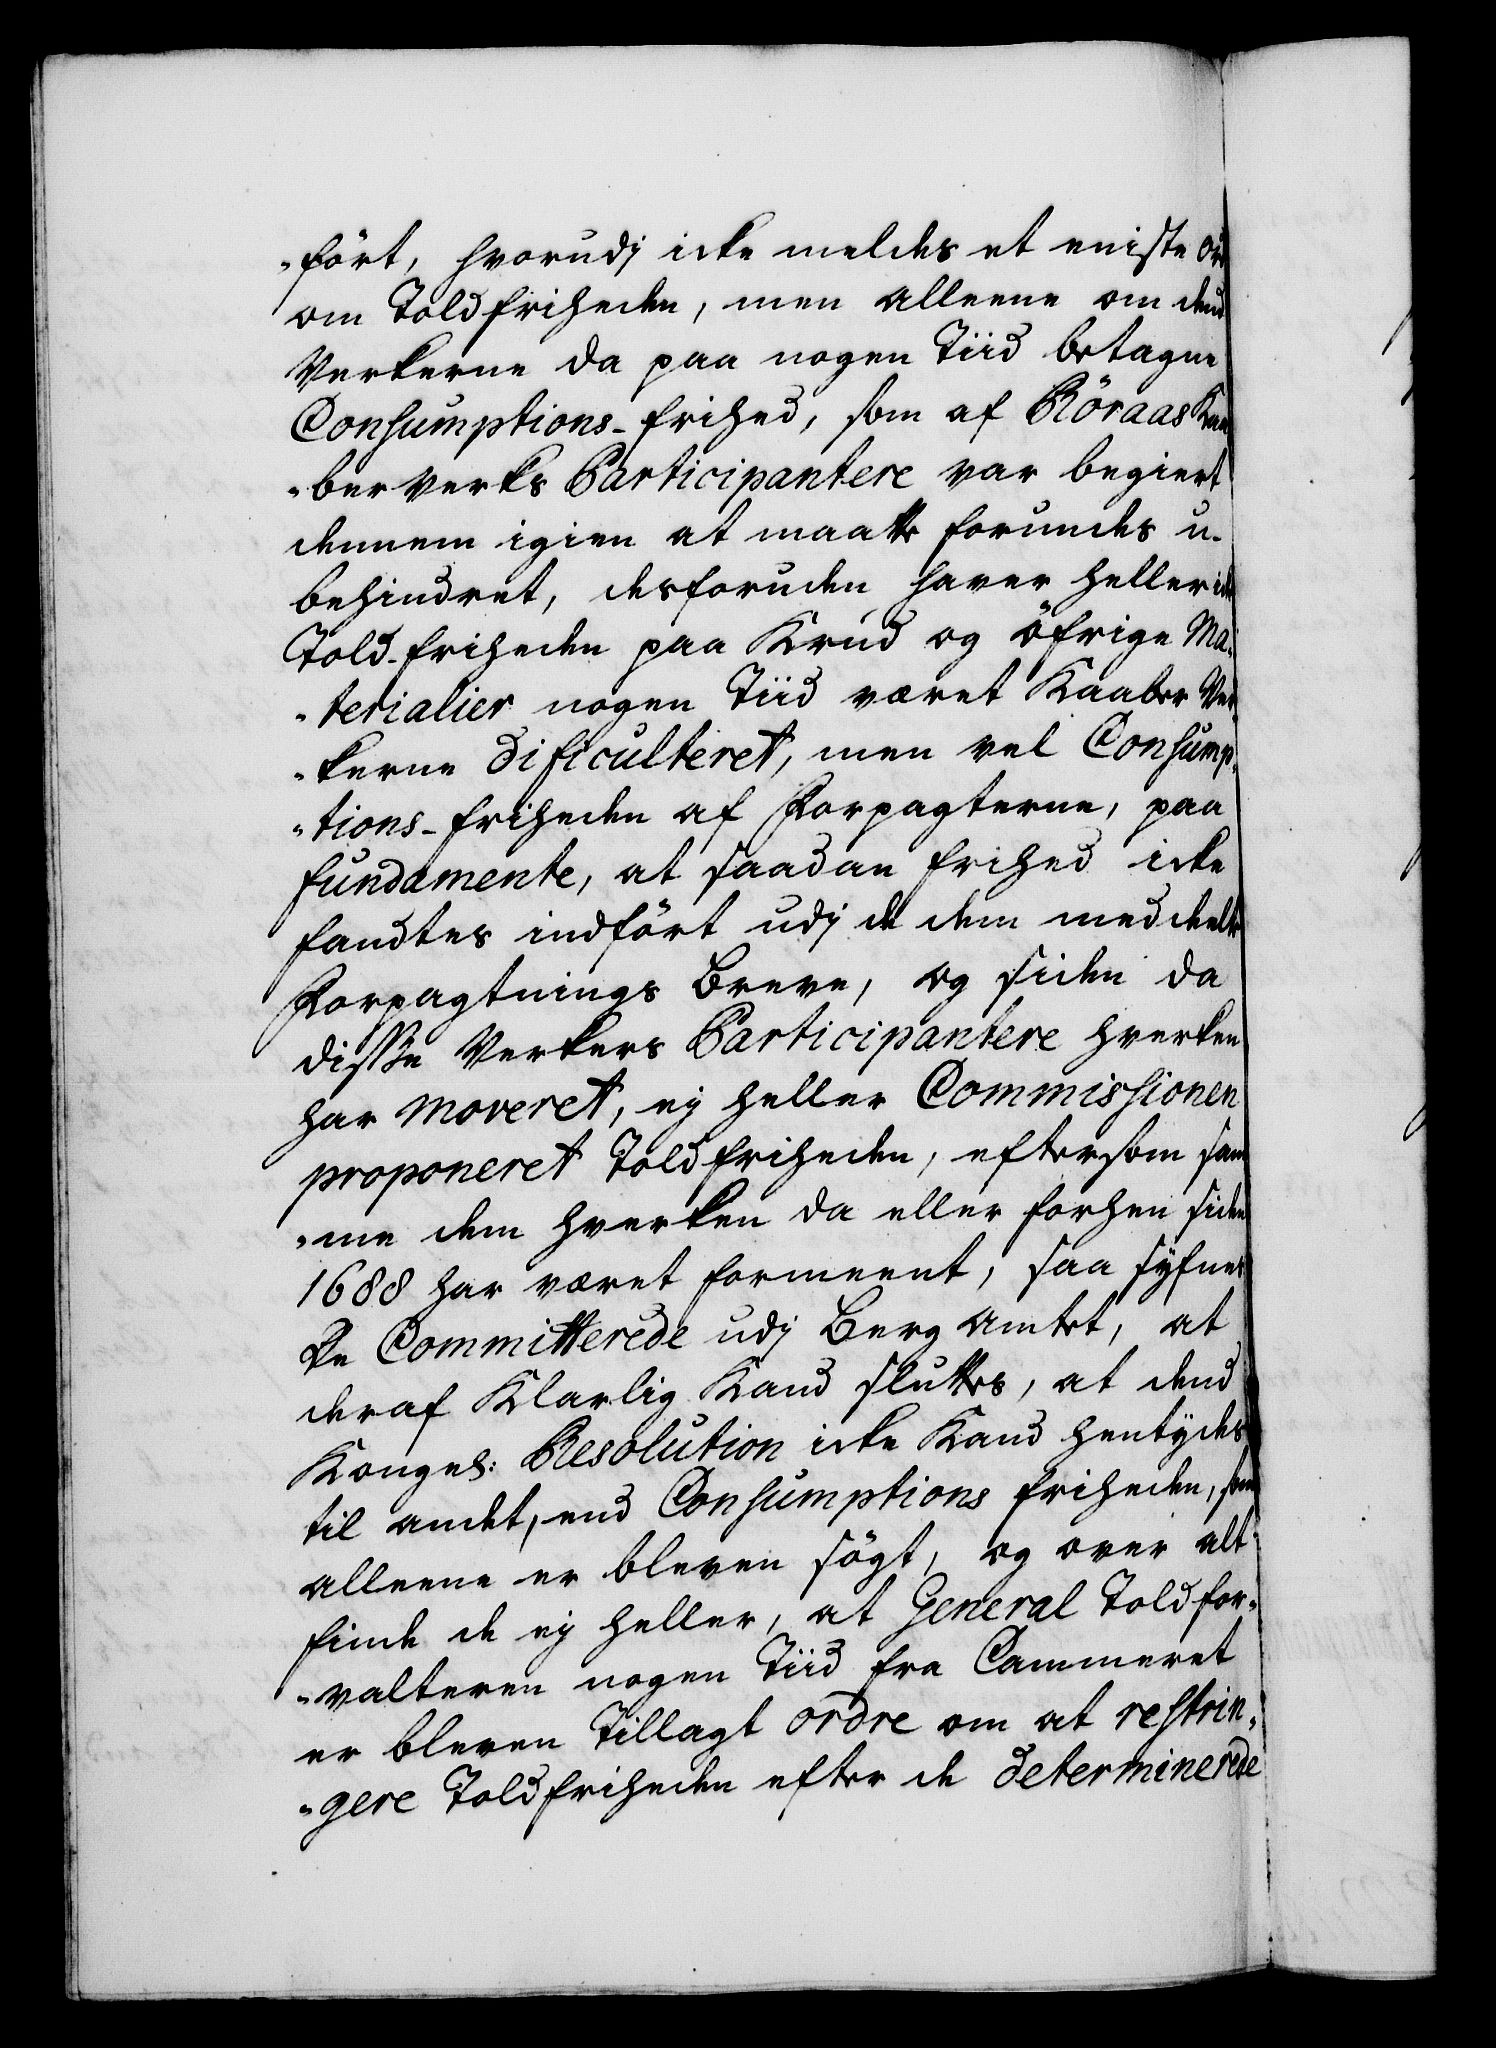 "fört, hvorudj icke meldes et eniste ord
om Toldfriheden, men alleene om dend
Verkerne da paa nogen Tiid betagne
Consumptions-frihed, som af Röraas Kaa¬
"berverks Participantere var begiert
dennem igien at maatte forundes u-
behindret, desforuden haver heller icke
Told-friheden paa Krud og öfrige Ma¬
"terialier nogen Tiid været Kaaber Ver¬
"kerne dificulteret, men vel Consump¬
"tions-friheden af Forpagterne, paa
fundamente, at saadan frihed icke
fandtes indfört udj de dem meddeelte
Forpagtnings Breve, og siden da
disse Verkers Participantere hverken
har moveret, ej heller Commissionen
proponeret Toldfriheden, eftersom sam¬
"me dem hverken da eller forhen siden
1688 har været formeent, saa syfnes
De Committerede udj Berg Amtet, at
deraf Klarlig Kand sluttes, at dend
Kongel: Resolution icke Kand hentydes
til andet, end Consumptions friheden, som
alleene er bleven sögt, og over alt
finde de ej heller, at General Toldfor¬
"valteren nogen Tiid fra Cammeret
er bleven Tillagt ordre om at restrin¬
"gere Toldfriheden efter de determinerede